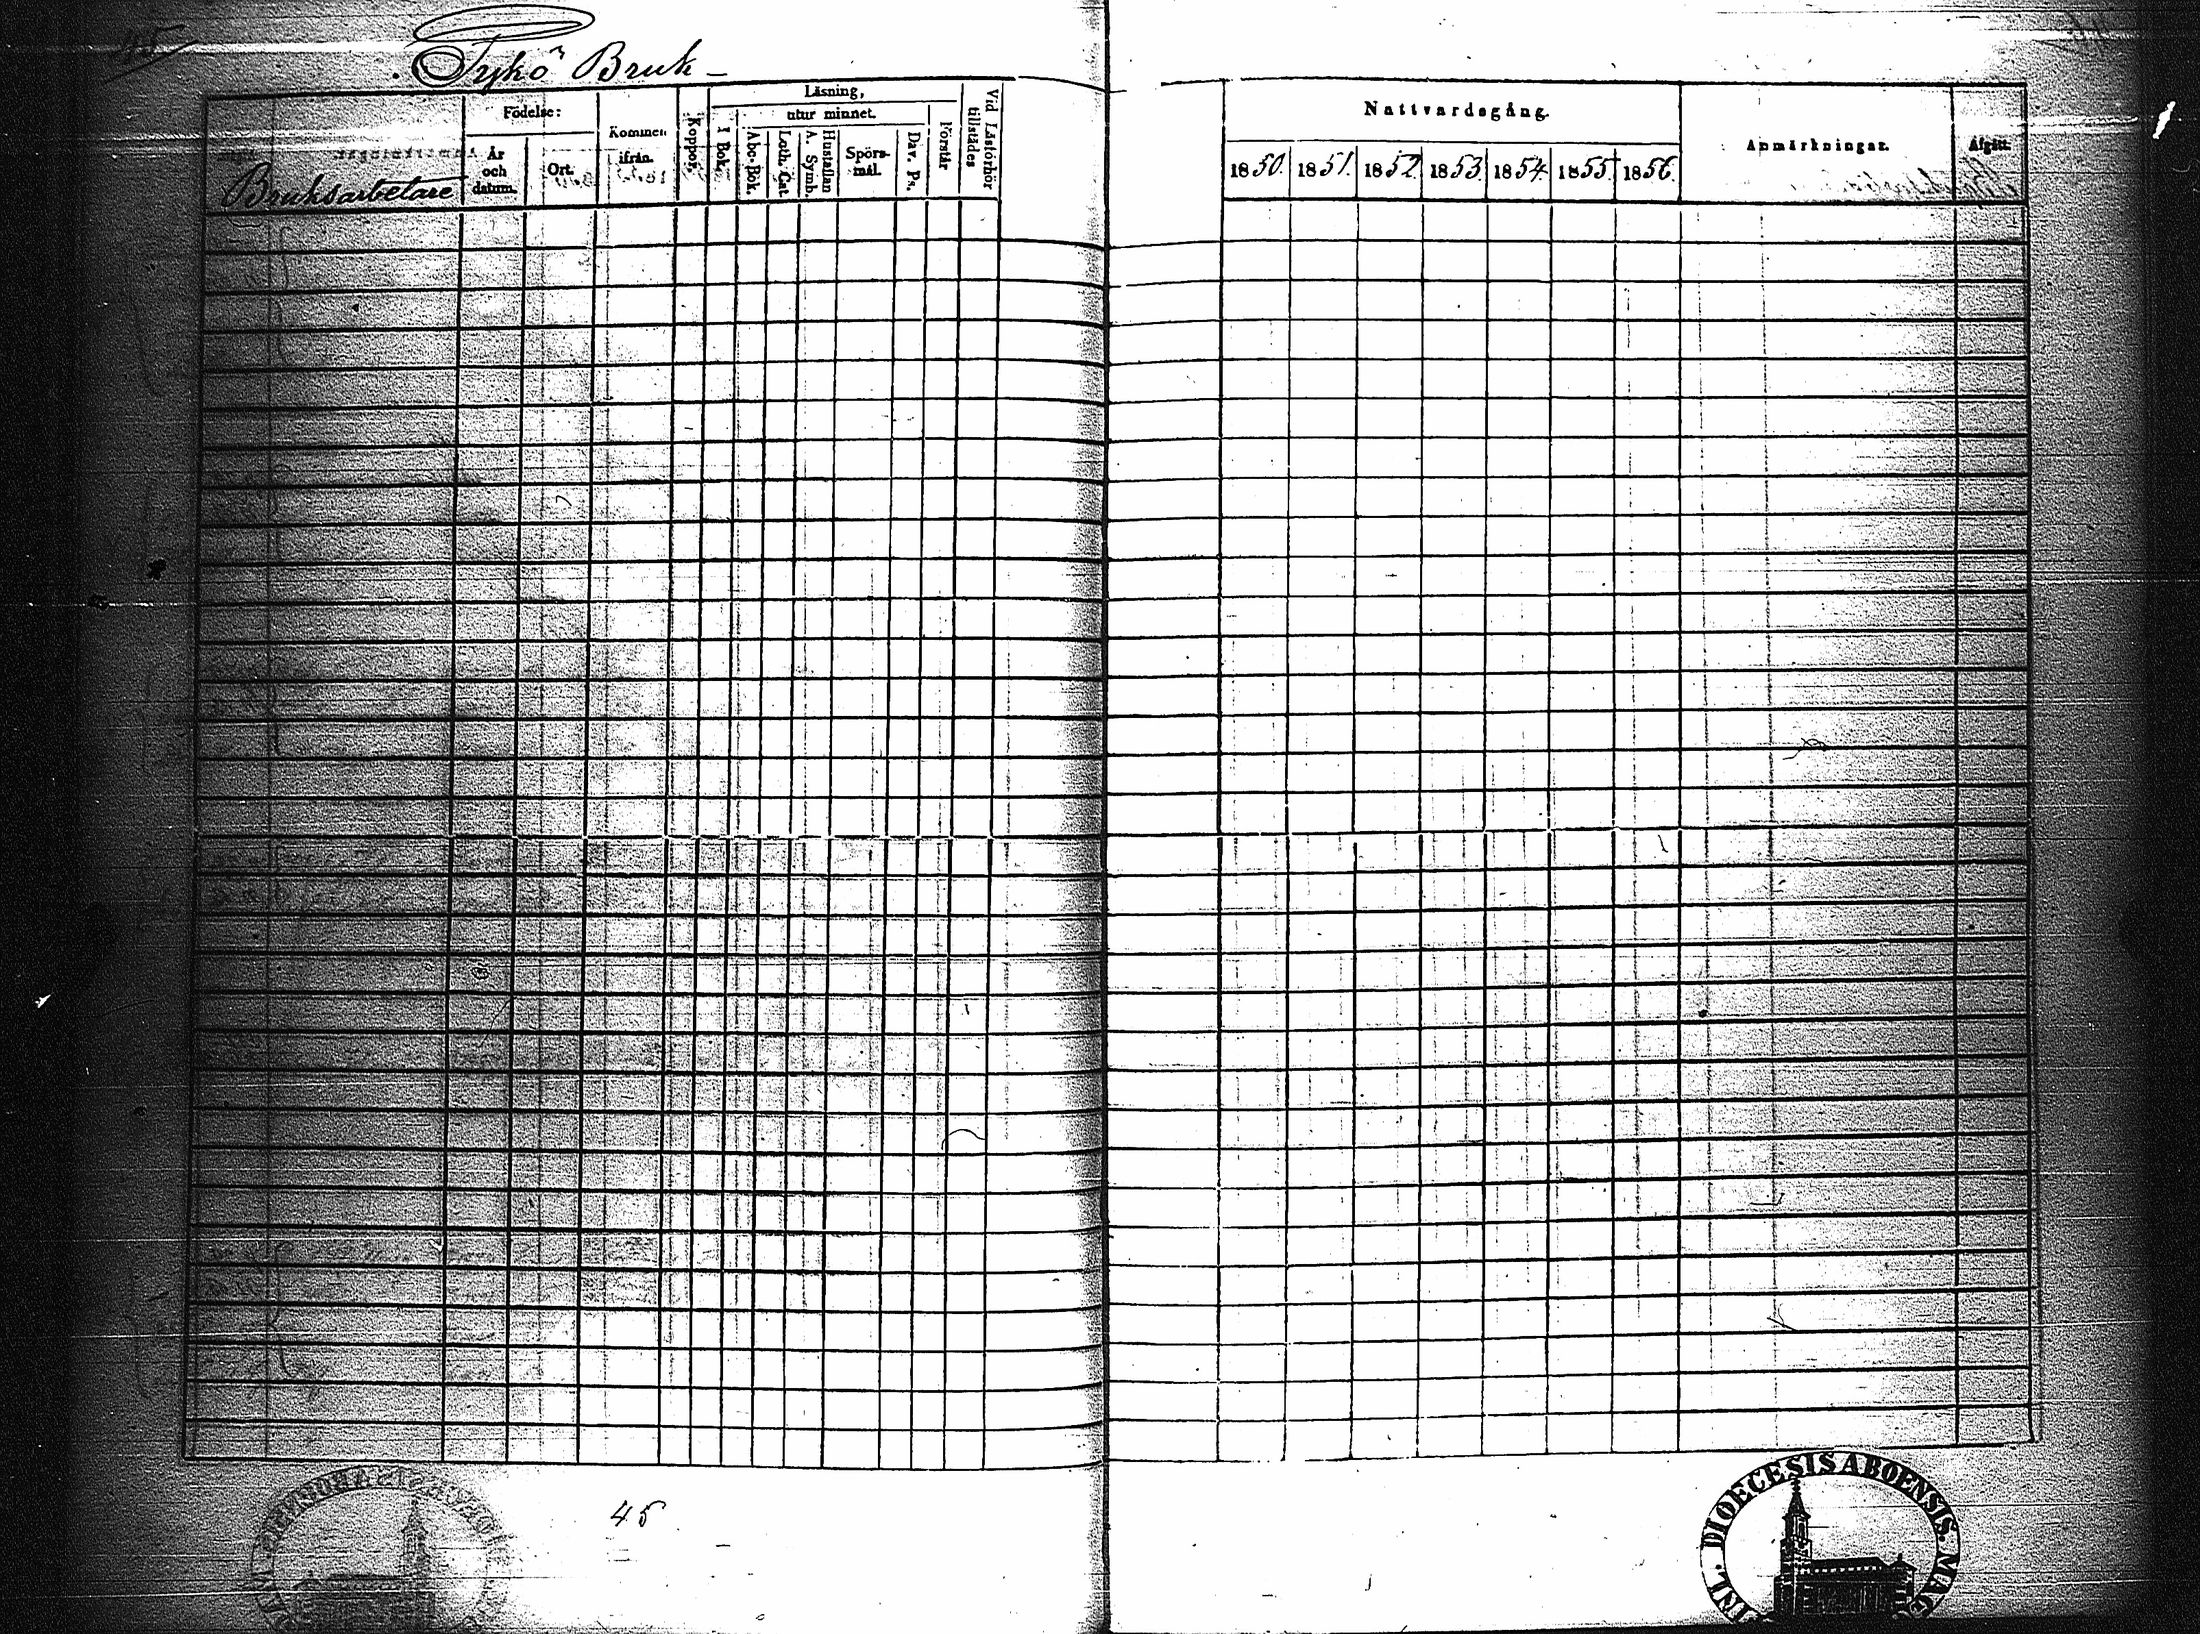 45
Tykö Bruk
Födelse:
Kommen ifrån.
Koppor.
Läsning,
utur minnet.
Vid Läsförhör tillstädes
År och datum.
Ort.
I Bok.
Abc-Bok.
Luth. Cat.
Hustaflan A. Symb.
Spörs-mål.
Dav. Ps.
Förstår
Bruksarbetare
Nattvardsgång.
Anmärkningar.
Afgått.
1850. 1851. 1852. 1853. 1854. 1855. 1856.
45
DIOECESIS ABOENSIS. MAG